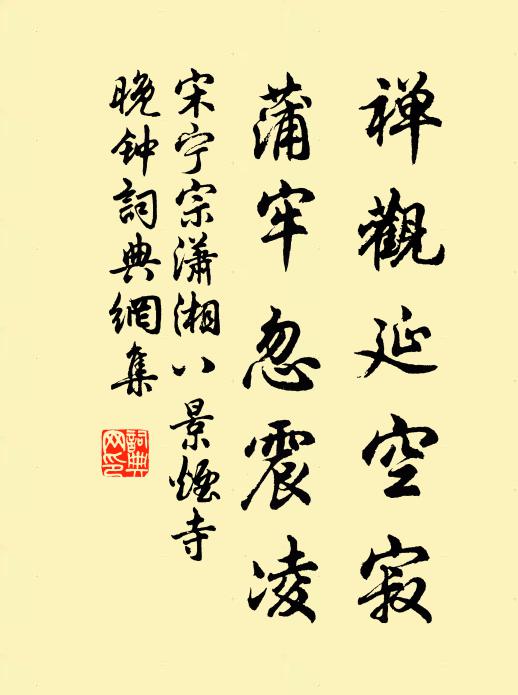 禅觀延空寂
蒲牢忽震凌
宋宁宗瀟湘八景煙寺
晚钟詞典網集
詞典
网印